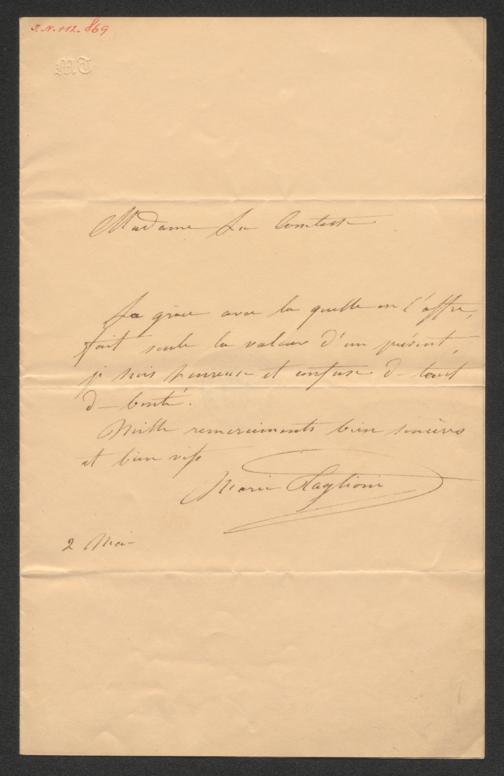 I.N. 112.869
MT
Madame La Comtesse
La grâce avec la quelle on l'offre,
fait seule la valeur d'un présent,
je suis heureuse et confuse de tant
de bonté.
Mille remerciements bien sincères
et bien vifs
Marie Taglioni
2 Mai